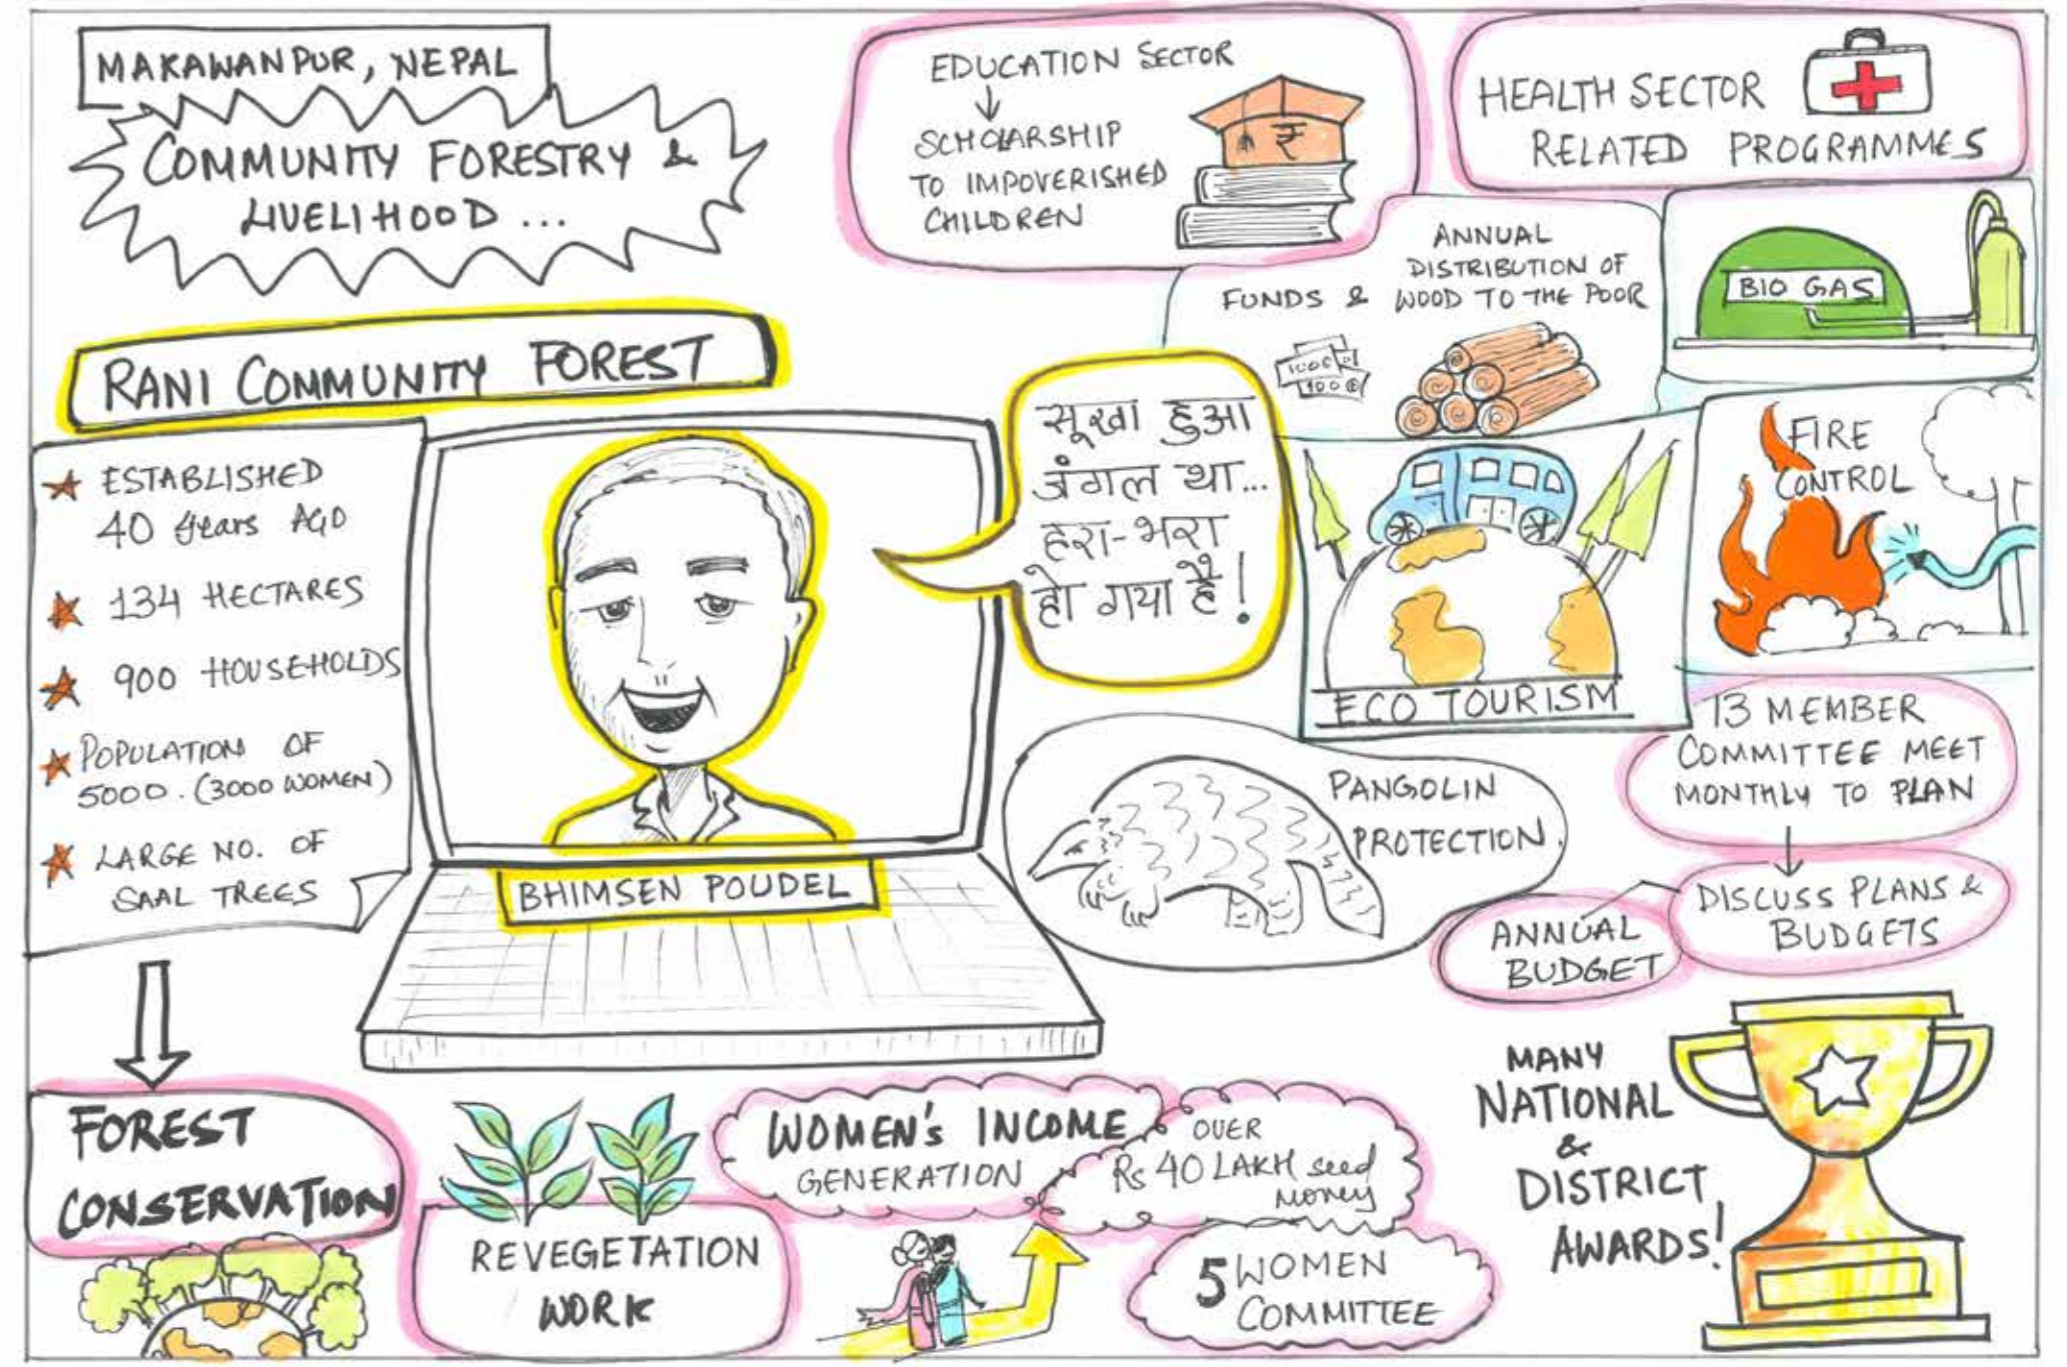 MAKAWANPUR, NEPAL
COMMUNITY FORESTRY &
LIVELIHOOD ...
RANI COMMUNITY FOREST
ESTABLISHED
40 years AGO
134 HECTARES
900 HOUSEHOLDS
POPULATION OF
5000. (3000 WOMEN)
LARGE NO. OF
SAAL TREES
BHIMSEN POUDEL
सूखा हुआ
जंगल था...
हरा-भरा
हो गया है!
EDUCATION SECTOR
SCHOLARSHIP
TO IMPOVERISHED
CHILDREN
₹
HEALTH SECTOR
RELATED PROGRAMMES
FUNDS &
ANNUAL
DISTRIBUTION OF
WOOD TO THE POOR
BIO GAS
FIRE
CONTROL
ECO TOURISM
PANGOLIN
PROTECTION
13 MEMBER
COMMITTEE MEET
MONTHLY TO PLAN
DISCUSS PLANS &
BUDGETS
ANNUAL
BUDGET
FOREST
CONSERVATION
REVEGETATION
WORK
WOMEN'S INCOME
GENERATION
OVER
Rs 40 LAKH seed
money
5 WOMEN
COMMITTEE
MANY
NATIONAL
&
DISTRICT
AWARDS!